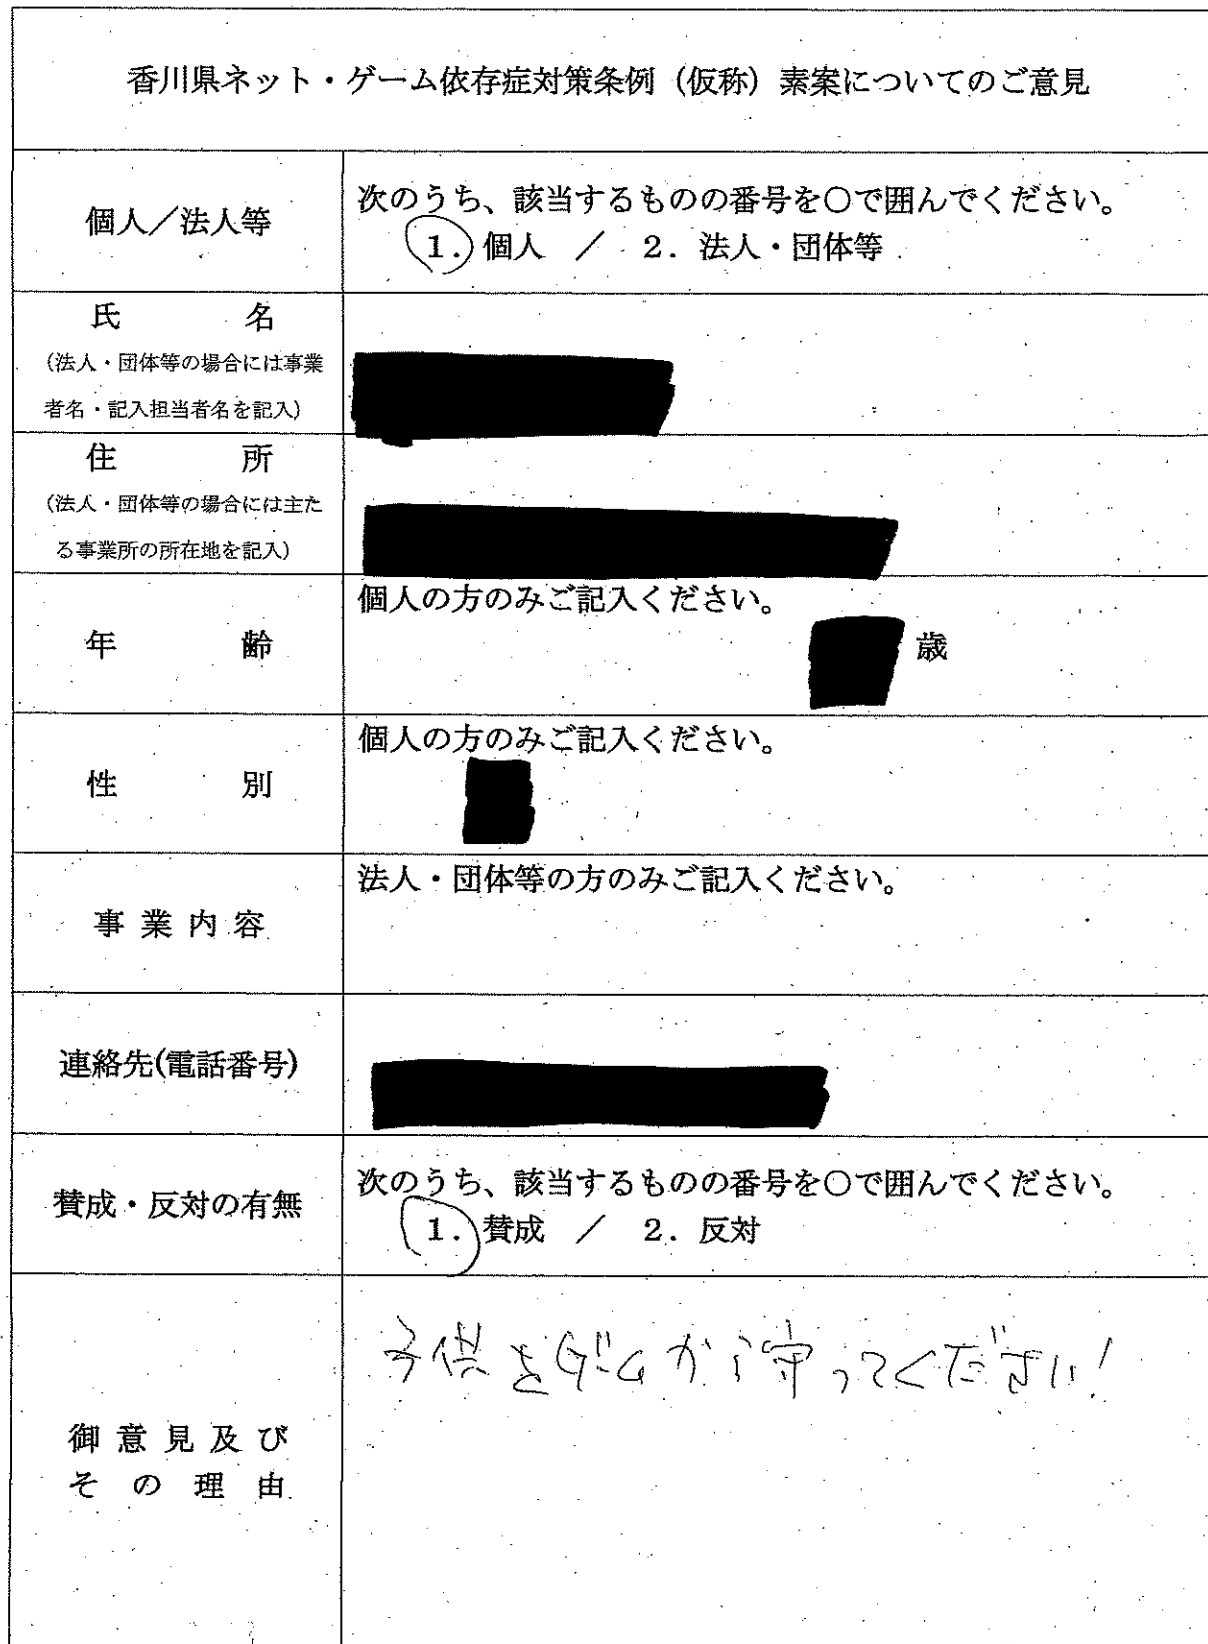 香川県ネット・ゲーム依存症対策条例（仮称）素案についてのご意見
個人／法人等
次のうち、該当するものの番号を○で囲んでください。
1. 個人 ／ 2. 法人・団体等
氏 名
（法人・団体等の場合には事業
者名・記入担当者名を記入）
住 所
（法人・団体等の場合には主た
る事業所の所在地を記入）
年 齢
個人の方のみご記入ください。
歳
性 別
個人の方のみご記入ください。
事業内容
法人・団体等の方のみご記入ください。
連絡先(電話番号)
賛成・反対の有無
次のうち、該当するものの番号を○で囲んでください。
1. 賛成 ／ 2. 反対
御意見及び
その理由
子供をゲームから守ってください！